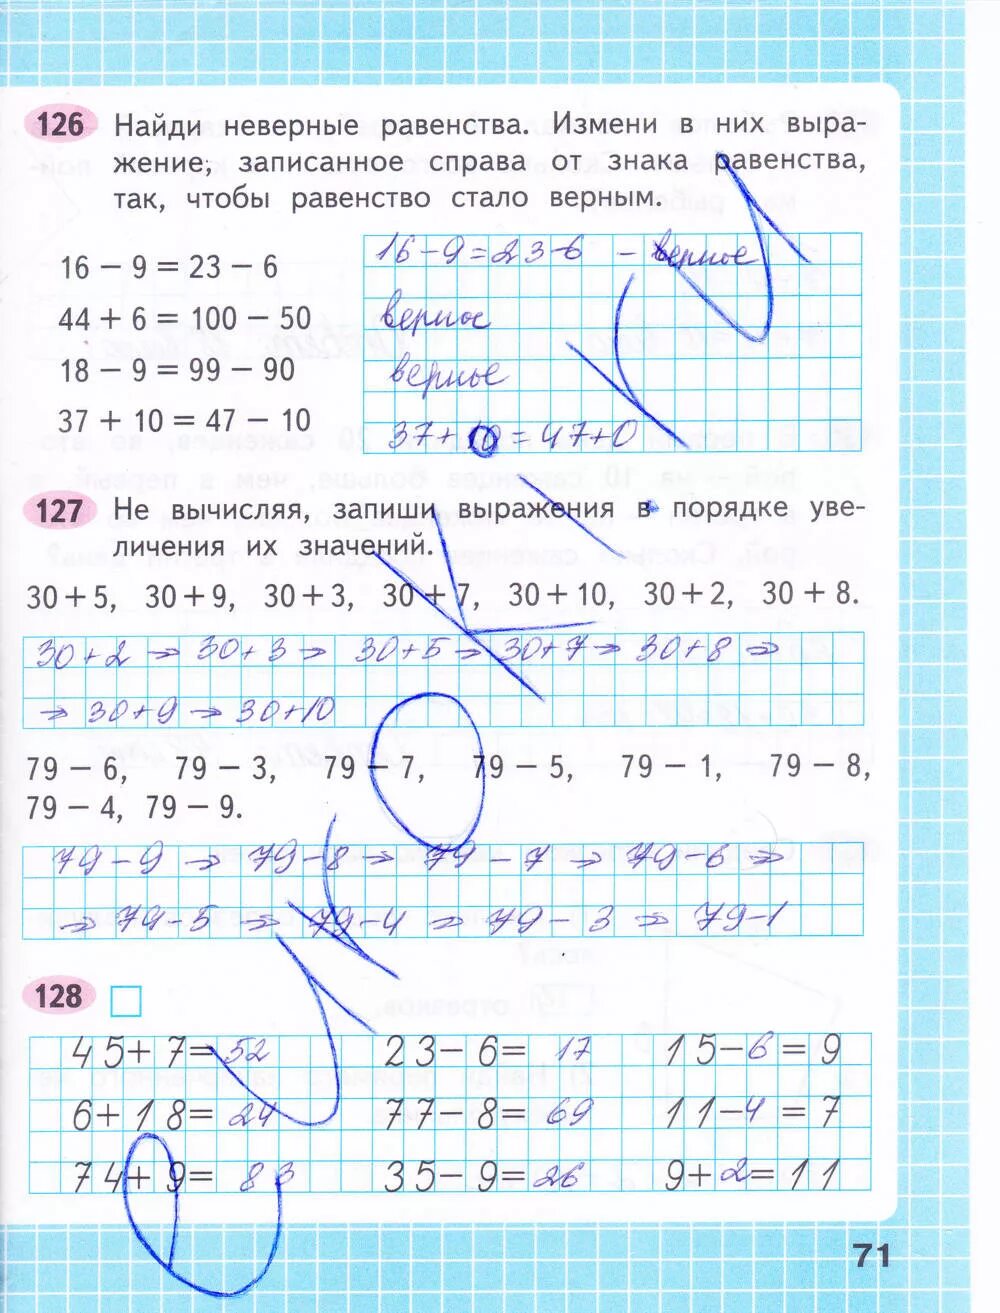 126 Найди неверные равенства. Измени в них выра-
жение, записанное справа от знака равенства,
так, чтобы равенство стало верным.
16 − 9 = 23 − 6
16-9=23-6 - верное
44 + 6 = 100 − 50
верное
18 − 9 = 99 − 90
верное
37 + 10 = 47 − 10
37+10=47+0
127 Не вычисляя, запиши выражения в порядке уве-
личения их значений.
30 + 5, 30 + 9, 30 + 3, 30 + 7, 30 + 10, 30 + 2, 30 + 8.
30+2 → 30+3 → 30+5 → 30+7 → 30+8 →
→ 30+9 → 30+10
79 − 6, 79 − 3, 79 − 7, 79 − 5, 79 − 1, 79 − 8,
79 − 4, 79 − 9.
79-9 → 79-8 → 79-7 → 79-6 →
→ 79-5 → 79-4 → 79-3 → 79-1
128
45+7=52 23-6=17 15-6=9
6+18=24 77-8=69 11-4=7
74+9=83 35-9=26 9+2=11
71